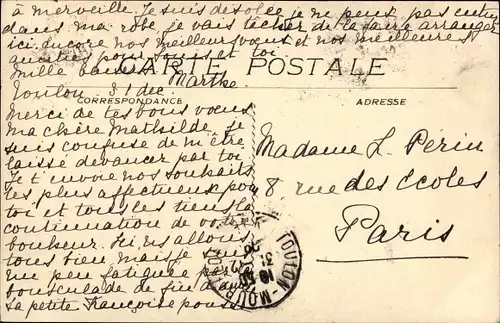 à merveille. Je suis désolée je ne peux pas entrer
dans ma robe je vais tâcher de la faire arranger
ici. Encore nos meilleurs vœux et nos meilleures
pour vous et toi
Mille baisers
Marthe
CARTE POSTALE
Toulon 31 déc
CORRESPONDANCE
ADRESSE
Merci de tes bons vœux
ma chère Mathilde, je
suis confuse de m'être
laissé devancer par toi
Je t'envoie nos souhaits
les plus affectueux pour
toi et tous les tiens la
continuation de votre
bonheur. Ici, nous allons
tous bien mais je suis
un peu fatiguée par la
bousculade de fin d'année
La petite Françoise pousse
Madame L. Périn
8, rue des Ecoles
Paris
TOULON - MOURILLON
18 30
31 12